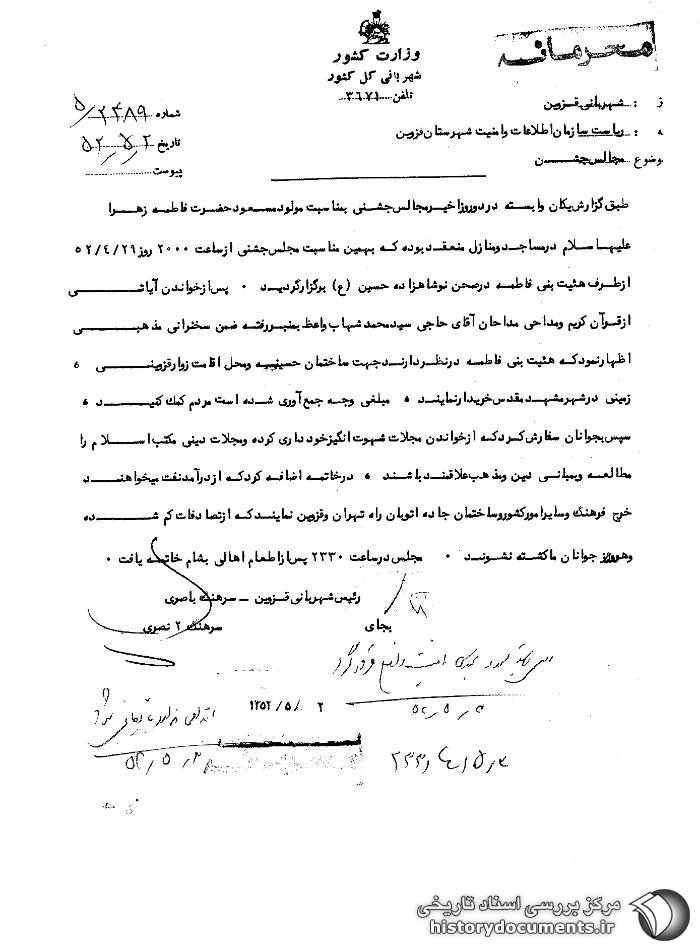 محرمانه
وزارت کشور
شهربانی کل کشور
تلفن ۳۶۷۱
شماره ۵/۲۴۸۹
تاریخ ۵۲/۵/۲
پیوست
ز : شهربانی قزوین
به : ریاست سازمان اطلاعات و امنیت شهرستان قزوین
موضوع : مجالس جشن
طبق گزارش یکان وابسته در دو روز اخیر مجالس جشنی بمناسبت مولود مسعود حضرت فاطمه زهرا
علیها سلام در مساجد و منازل منعقد بوده که بهمین مناسبت مجلس جشنی از ساعت ۲۰۰۰ روز ۵۲/۴/۲۹
از طرف هئیت بنی فاطمه در صحن نو شاهزاده حسین (ع) برگزار گردید ۰ پس از خواندن آیاتی
از قرآن کریم و مداحی مداحان آقای حاجی سید محمد شهاب واعظ بمنبر رفته ضمن سخنرانی مذهبی
اظهار نمود که هئیت بنی فاطمه در نظر دارند جهت ساختمان حسینیه و محل اقامت زوار قزوینی ،
زمینی در شهر مشهد مقدس خریدار نمایند ، مبلغی وجه جمع آوری شده است مردم کمک کنید ،
سپس بجوانان سفارش کرد که از خواندن مجلات شهوت انگیز خودداری کرده و مجلات دینی مکتب اسلام را
مطالعه و بمبانی دین و مذهب علاقمند باشند ، در خاتمه اضافه کرد که از درآمد نفت میخواهند
خرج فرهنگ و سایر امور کشور و ساختمان جاده اتوبان راه تهران و قزوین نمایند که از تصادفات کم شده
و هر روز جوانان ما کشته نشوند ۰ مجلس در ساعت ۲۳۳۰ پس از اطعام اهالی بشام خاتمه یافت ۰
رئیس شهربانی قزوین – سرهنگ یاصری
بجای سرهنگ ۲ نصری
۵۲/۵/۲
۱۳۵۲/۵/۲
۵۲/۵/۲
مرکز بررسی اسناد تاریخی
historydocuments.ir